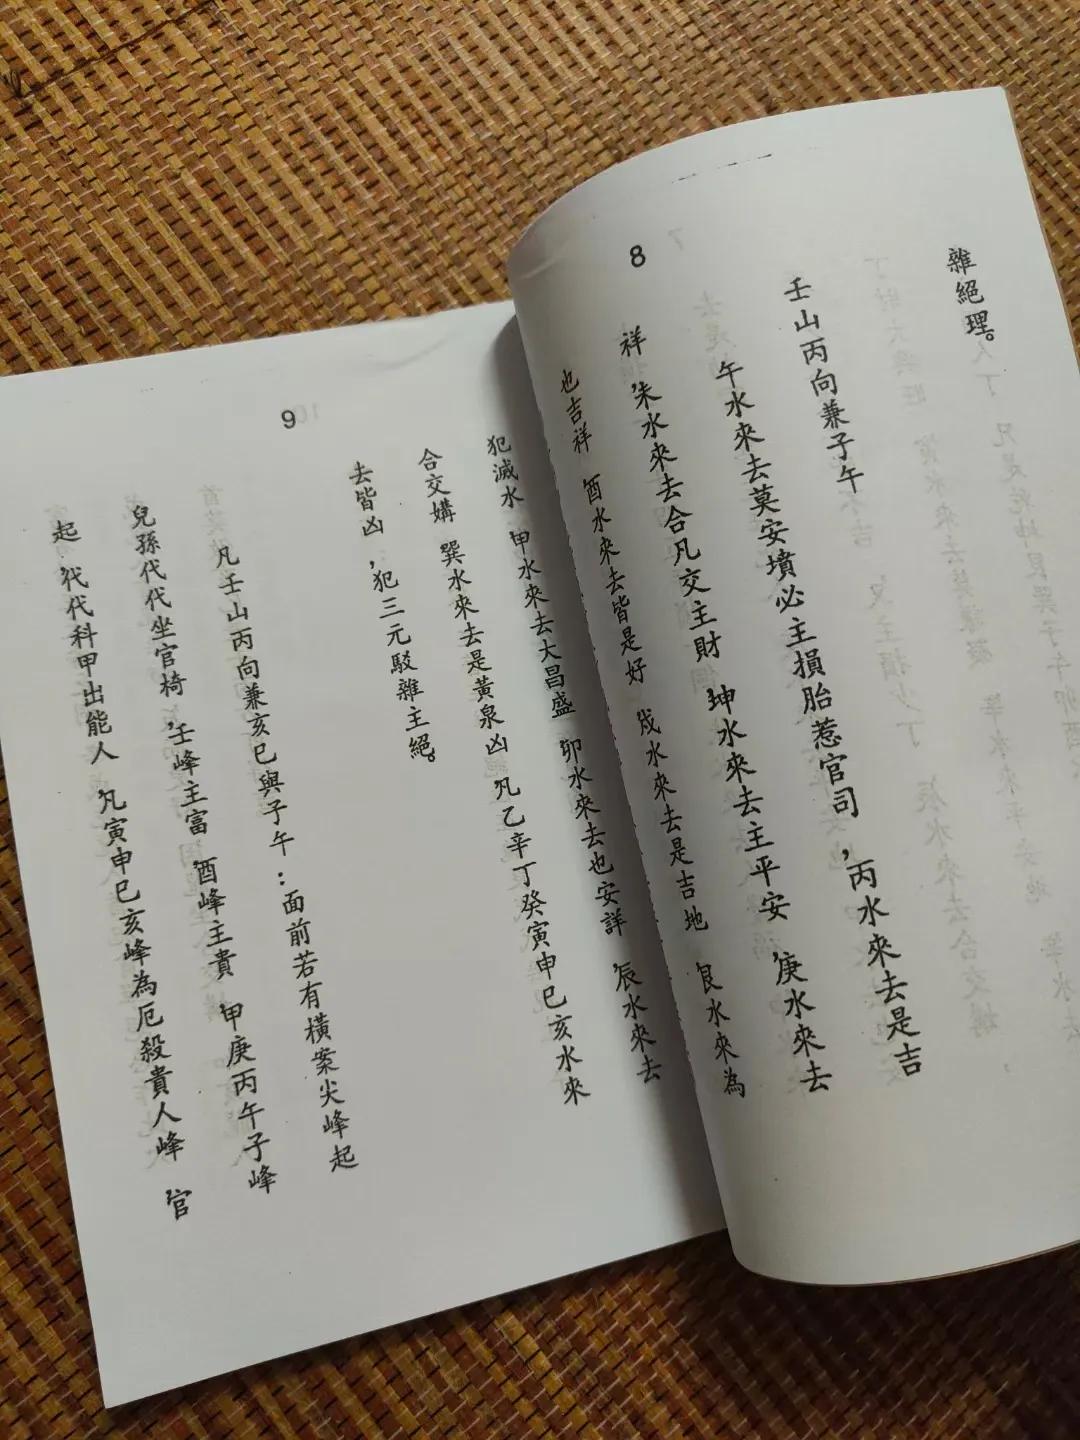 8
雜絕理。
壬山丙向兼子午
午水來去莫安墳必主損胎惹官司,丙水來去是吉
祥 ,朱水來去合凡交主財 坤水來去主平安 庚水來去
也吉祥 酉水來去皆是好 戌水來去是吉地 艮水來為
9
犯滅水 甲水來去大昌盛 卯水來去也安詳 辰水來去
合交媾 巽水來去是黃泉凶 凡乙辛丁癸寅申巳亥水來
去皆凶,犯三元駁雜主絕。
凡壬山丙向兼亥巳與子午:面前若有橫案尖峰起
兒孫代代坐官椅 ,壬峰主富 酉峰主貴 甲庚丙午子峰
起 代代科甲出能人 凡寅申巳亥峰為厄殺貴人峰 官